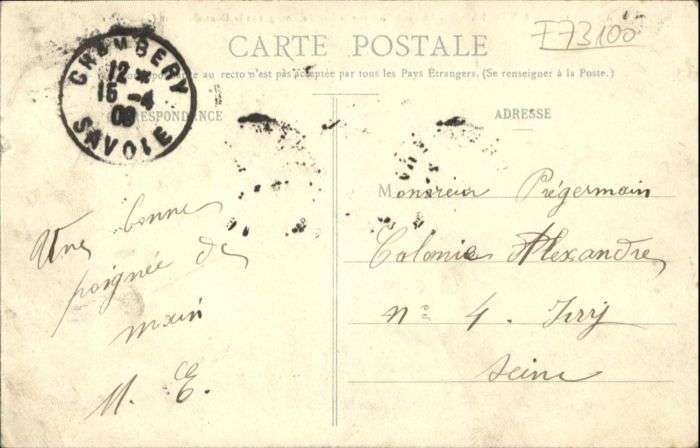 F73100
CARTE POSTALE
au recto n'est pas acceptée par tous les Pays Étrangers. (Se renseigner à la Poste.)
CHAMBERY
12
15 -4
SAVOIE
RESPONDANCE
ADRESSE
Une bonne
poignée de
main
M. E.
Monsieur Prégermain
Colonie Alexandre
nº 4. Ivry
Seine